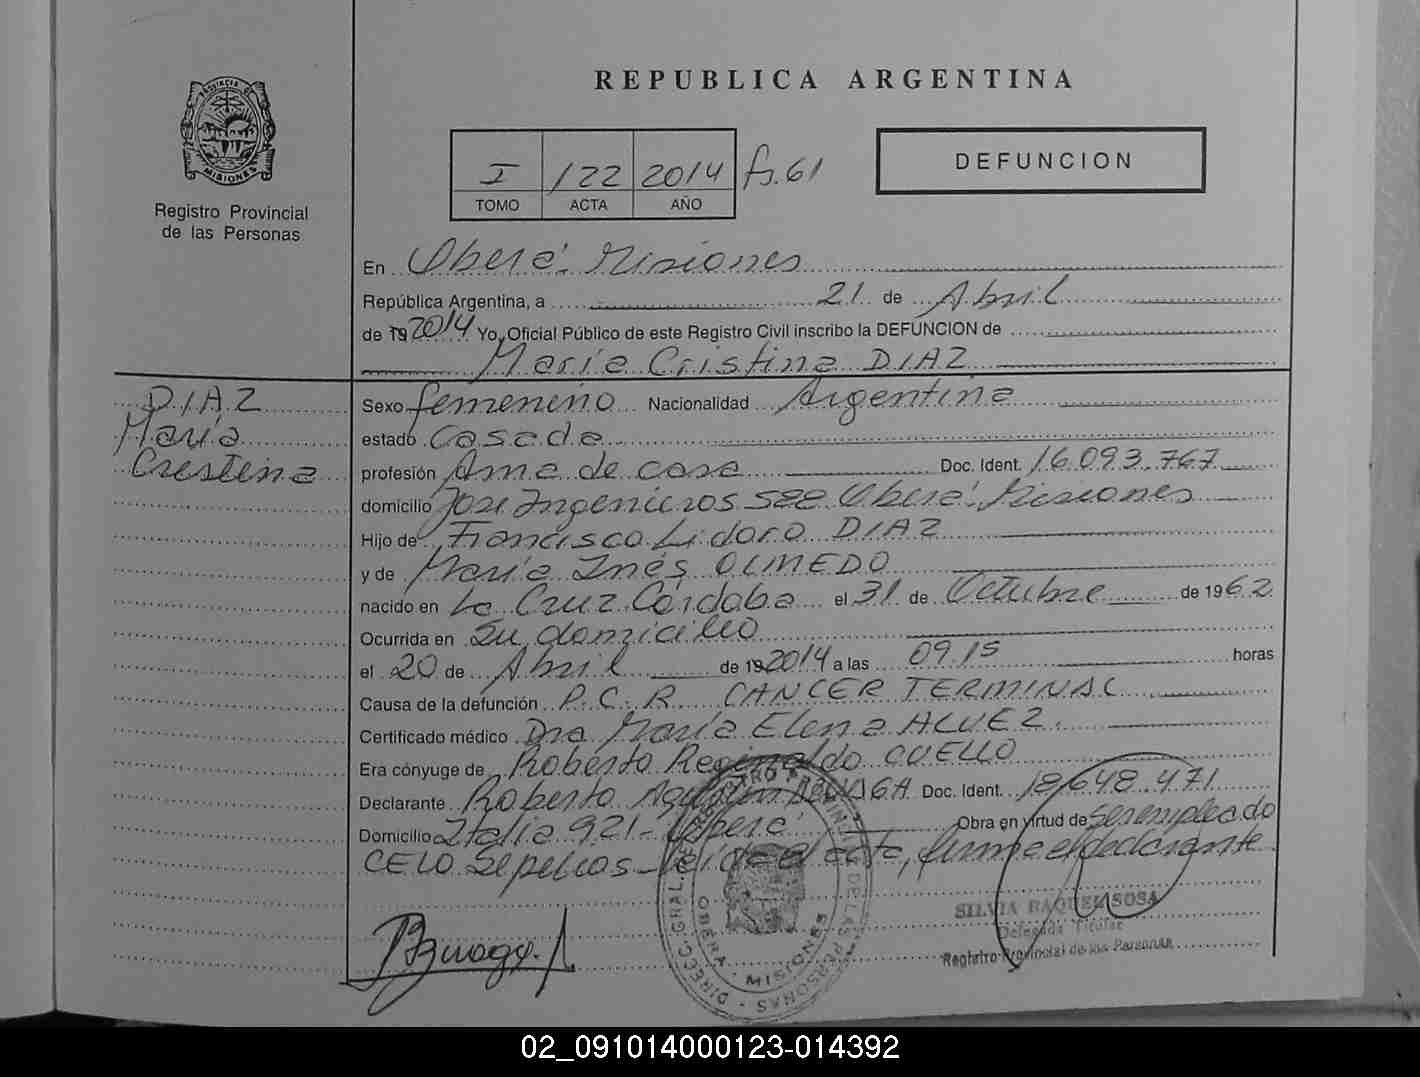 PROVINCIA DE
MISIONES
Registro Provincial
de las Personas
REPUBLICA ARGENTINA
I 122 2014 fs. 61
TOMO ACTA AÑO
DEFUNCION
En Oberá. Misiones
República Argentina, a 21 de Abril
de 19 2014 Yo, Oficial Público de este Registro Civil inscribo la DEFUNCION de
María Cristina DIAZ
DIAZ
María
Cristina
Sexo femenino Nacionalidad Argentina
estado Casada
profesión Ama de casa Doc. Ident. 16.093.767
domicilio José Ingenieros 522 Oberá. Misiones
Hijo de Francisco Lidoro DIAZ
y de María Inés OLMEDO
nacido en La Cruz. Córdoba el 31 de Octubre de 1962
Ocurrida en Su domicilio
el 20 de Abril de 19 2014 a las 09.15 horas
Causa de la defunción P.C.R. CANCER TERMINAL
Certificado médico Dra María Elena ALVEZ.
Era cónyuge de Roberto Reginaldo CUELLO
Declarante Roberto Doc. Ident. 18.648.471
Domicilio Italia 921- Oberá Obra en virtud de ser empleado
CELO Sepelios - leída el acta, firma el declarante
SILVIA RAQUEL SOSA
Delegada Titular
Registro Provincial de las Personas
OBERA - MISIONES
02_091014000123-014392